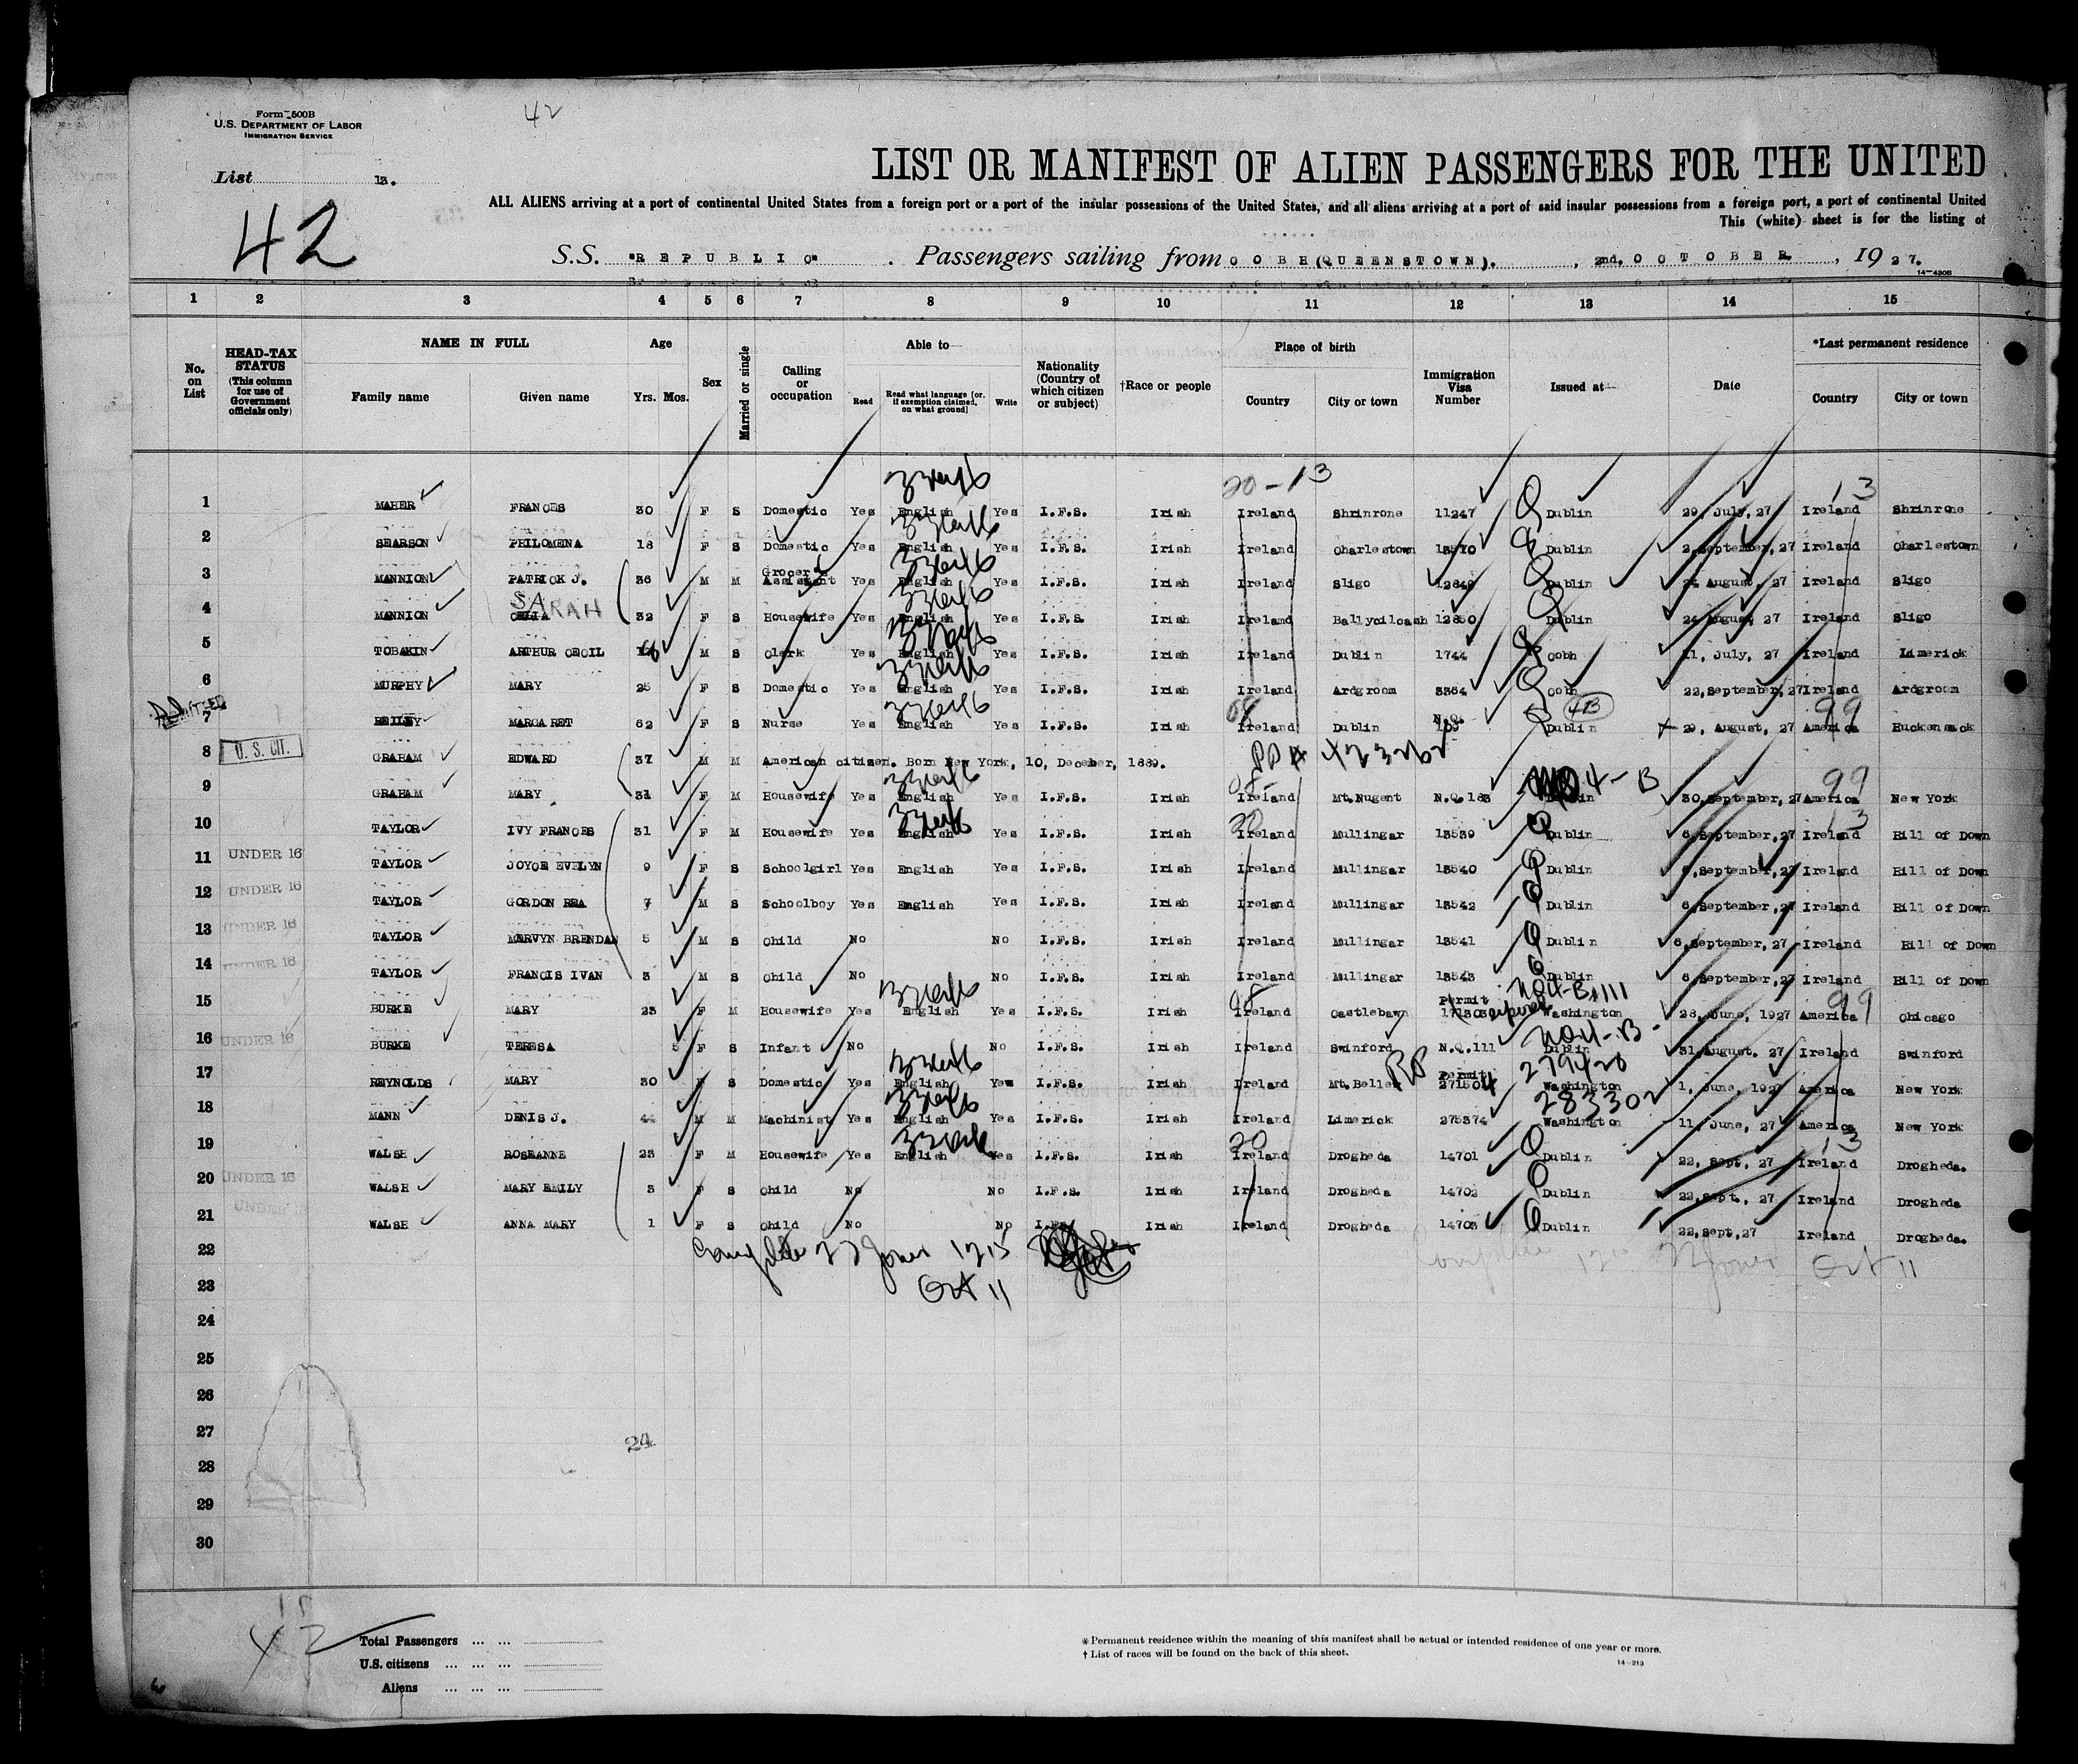 Form 500B
U.S. DEPARTMENT OF LABOR
IMMIGRATION SERVICE
42
List 13.
42
LIST OR MANIFEST OF ALIEN PASSENGERS FOR THE UNITED
ALL ALIENS arriving at a port of continental United States from a foreign port or a port of the insular possessions of the United States, and all aliens arriving at a port of said insular possessions from a foreign port, a port of continental United
This (white) sheet is for the listing of
S.S. "REPUBLIC". Passengers sailing from COBH (QUEENSTOWN)., 2nd. OCTOBER, 1927.
14-430B
1 2 3 4 5 6 7 8 9 10 11 12 13 14 15
No. on List
HEAD-TAX STATUS (This column for use of Government officials only)
NAME IN FULL
Family name Given name
Age
Yrs. Mos.
Sex
Married or single
Calling or occupation
Able to—
Read Read what language [or, if exemption claimed, on what ground] Write
Nationality (Country of which citizen or subject)
†Race or people
Place of birth
Country City or town
Immigration Visa Number
Issued at—
Date
*Last permanent residence
Country City or town
20-13 13
1 MAHER FRANCES 30 F S Domestic Yes English Yes I.F.S. Irish Ireland Shrinrone 11247 Dublin 29, July, 27 Ireland Shrinrone
2 SEARSON PHILOMENA 18 F S Domestic Yes English Yes I.F.S. Irish Ireland Charlestown 13570 Dublin 2, September, 27 Ireland Charlestown
3 MANNION PATRICK J. 36 M M Grocer's Assistant Yes English Yes I.F.S. Irish Ireland Sligo 12849 Dublin 24 August, 27 Ireland Sligo
SARAH
4 MANNION CELIA 32 F S Housewife Yes English Yes I.F.S. Irish Ireland Ballycilcash 12850 Dublin 24 August, 27 Ireland Sligo
5 TOBAKIN ARTHUR CECIL M S Clerk Yes English Yes I.F.S. Irish Ireland Dublin 1744 Cobh 11, July, 27 Ireland Limerick
6 MURPHY MARY 25 F S Domestic Yes English Yes I.F.S. Irish Ireland Ardgroom 3364 Cobh 22, September, 27 Ireland Ardgroom
ADMITTED
7 REILEY MARGARET 62 F S Nurse Yes English Yes I.F.S. Irish Ireland Dublin N.Q. 109 Dublin 4B 29, August, 27 America 99 Huckensack
8 U. S. CIT. GRAHAM EDWARD 37 M M American citizen. Born New York, 10, December, 1889. PP # 423262
9 GRAHAM MARY 31 F M Housewife Yes English Yes I.F.S. Irish Ireland Mt. Nugent N.Q. 183 4-B 30, September, 27 America 99 New York
10 TAYLOR IVY FRANCES 31 F M Housewife Yes English Yes I.F.S. Irish Ireland Mullingar 13539 Dublin 6, September, 27 Ireland Hill of Down
11 UNDER 16 TAYLOR JOYCE EVELYN 9 F S Schoolgirl Yes English Yes I.F.S. Irish Ireland Mullingar 13540 Dublin 6, September, 27 Ireland Hill of Down
12 UNDER 16 TAYLOR GORDON REA 7 M S Schoolboy Yes English Yes I.F.S. Irish Ireland Mullingar 13542 Dublin 6, September, 27 Ireland Hill of Down
13 UNDER 16 TAYLOR MERVYN BRENDAN 5 M S Child No No I.F.S. Irish Ireland Mullingar 13541 Dublin 6, September, 27 Ireland Hill of Down
14 UNDER 16 TAYLOR FRANCIS IVAN 3 M S Child No No I.F.S. Irish Ireland Mullingar 13543 Dublin 6, September, 27 Ireland Hill of Down
15 BURKE MARY 23 F M Housewife Yes English Yes I.F.S. Irish Ireland Castlebawn Permit Washington 28, June, 1927 America 99 Chicago
16 UNDER 16 BURKE TERESA F S Infant No No I.F.S. Irish Ireland Swinford N.Q. 111 Dublin 31, August, 27 Ireland Swinford
17 REYNOLDS MARY 30 F S Domestic Yes English Yes I.F.S. Irish Ireland Mt. Bellew RP Permit 271504 279420 Washington 1, June, 1927 America New York
18 MANN DENIS J. 44 M M Machinist Yes English Yes I.F.S. Irish Ireland Limerick 275374 283302 Washington 11, June, 27 America New York
19 WALSH ROSEANNE 23 F M Housewife Yes English Yes I.F.S. Irish Ireland Drogheda 14701 Dublin 22, Sept, 27 Ireland Drogheda.
20 UNDER 16 WALSH MARY EMILY 3 F S Child No No I.F.S. Irish Ireland Drogheda 14702 Dublin 22, Sept., 27 Ireland Drogheda
21 UNDER WALSH ANNA MARY 1 F S Child No No I.F.S. Irish Ireland Drogheda 14703 Dublin 22, Sept, 27 Ireland Drogheda.
22
Oct 11
Oct 11
23
24
25
26
27
24
28
29
30
42
Total Passengers ... ...
U.S. citizens ... ... ...
Aliens ... ... ...
* Permanent residence within the meaning of this manifest shall be actual or intended residence of one year or more.
† List of races will be found on the back of this sheet.
14-213